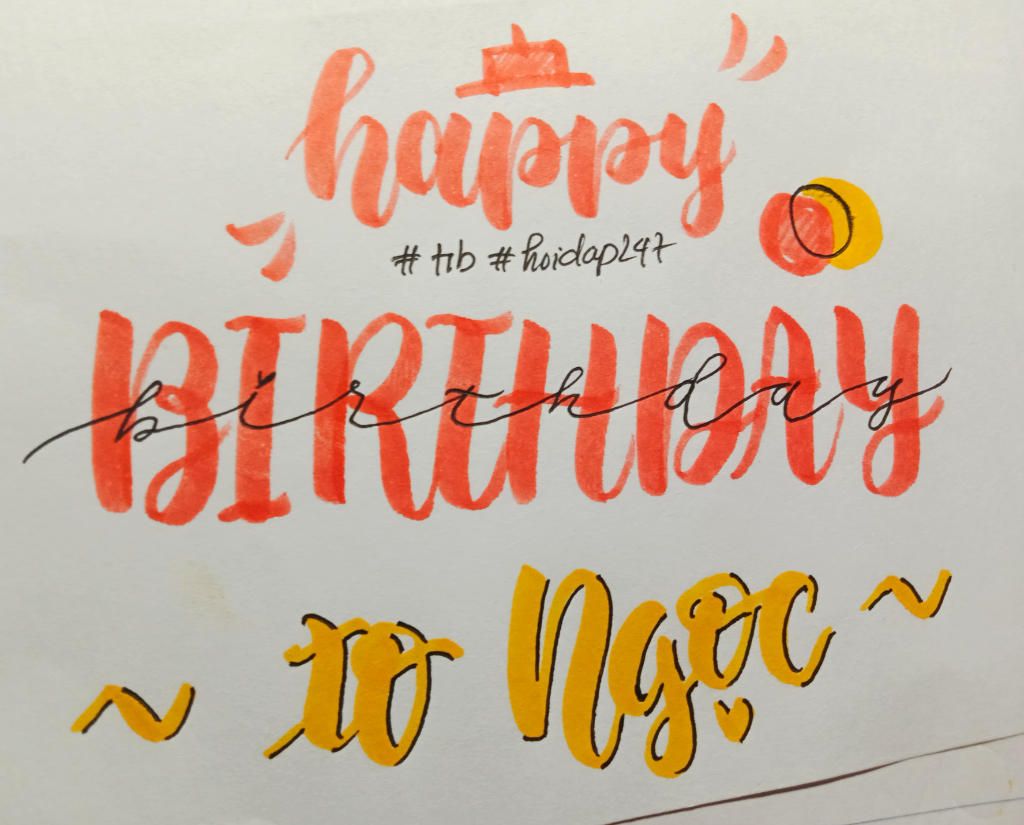 happy
#tib #hoidap247
BIRTHDAY
birthday
~ to Ngọc ~